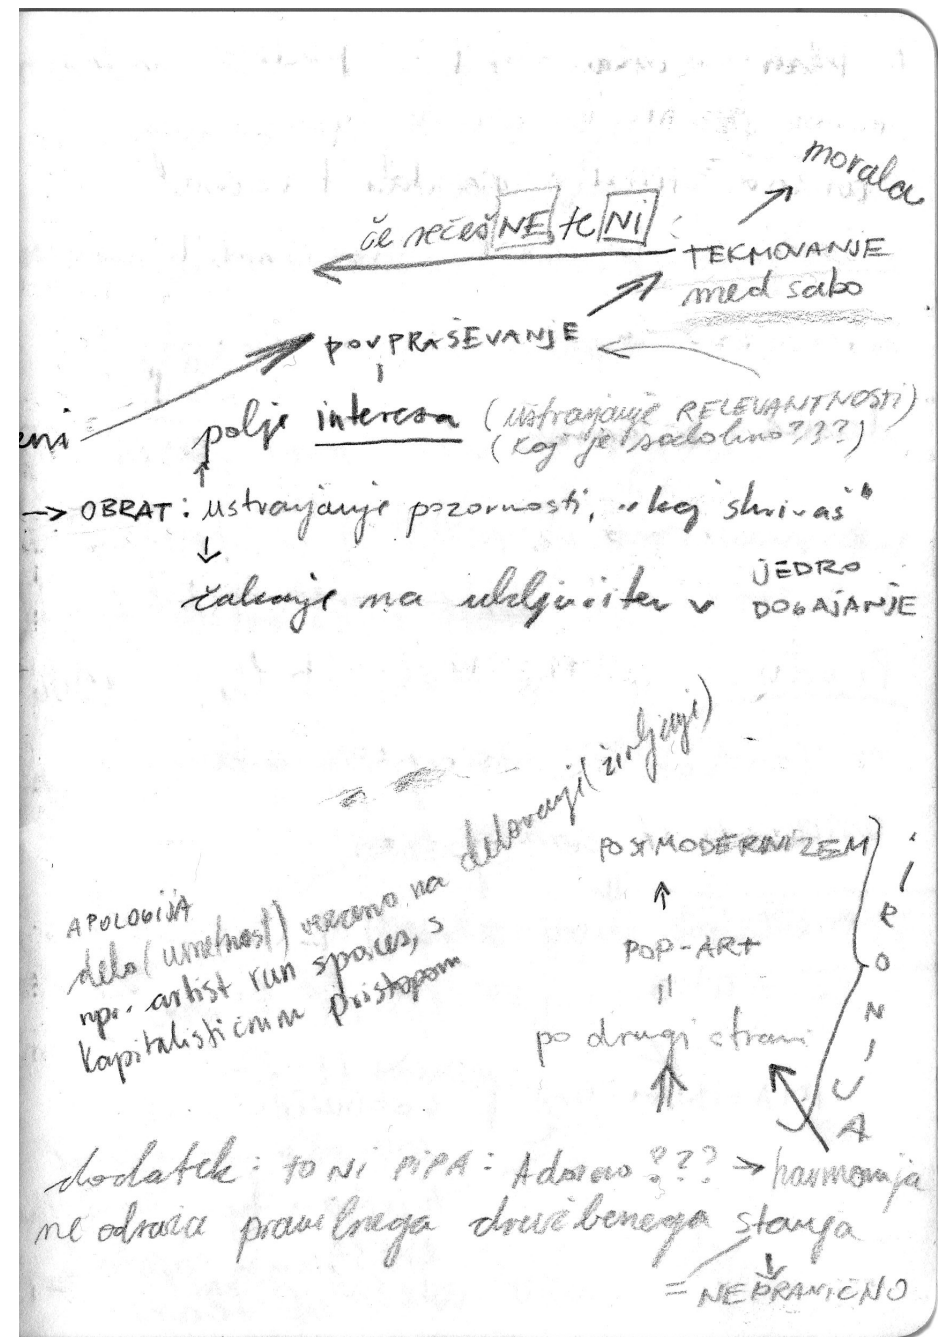 morala
če rečeš NE te NI :
TEKMOVANJE
med sabo
POVPRAŠEVANJE
polje interesa (ustvarjanje RELEVANTNOSTI)
(kaj je sodobno???)
→ OBRAT: ustvarjanje pozornosti, "kaj skrivaš"
čakanje na vključitev v JEDRO
DOGAJANJE
APOLOGIJA
delo (umetnost) vezano na delovanji (življenji)
npr. artist run spaces, s
kapitalističnim pristopom
POSTMODERNIZEM
POP-ART
po drugi strani
IRONIJA
dodatek: TO NI PIPA: Adorno??? → harmonija
ne odraža pravilnega družbenega stanja
=